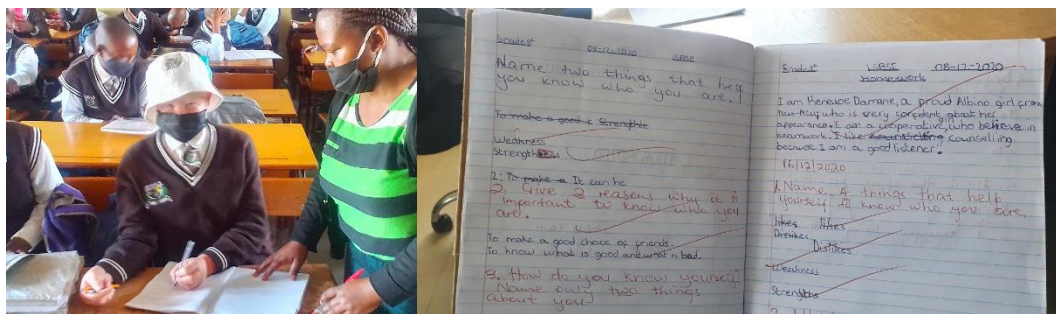 Grade 8ˢᵗ 08-12-2020 LSBSE
Name two things that help
you know who you are.
To make a good c Strengths
Weakness
Strength
2. To make a It can be
2. Give 2 reasons why it is
important to know who you
are.
To make a good choice of friends.
To know what is good and what is bad.
3. How do you know yourself?
Name only two things
about you?
LSBSE 08-12-2020
Homework
I am Keneuoe Damane, a proud Albino girl from
who is very confident about her
appearance. I am a cooperative, who believe in
teamwork. I like counselling
because I am a good listener.
16/12/2020
1. Name 4 things that help
yourself to know who you are.
likes likes
Dislikes
Dislikes
Weakness
Strengths